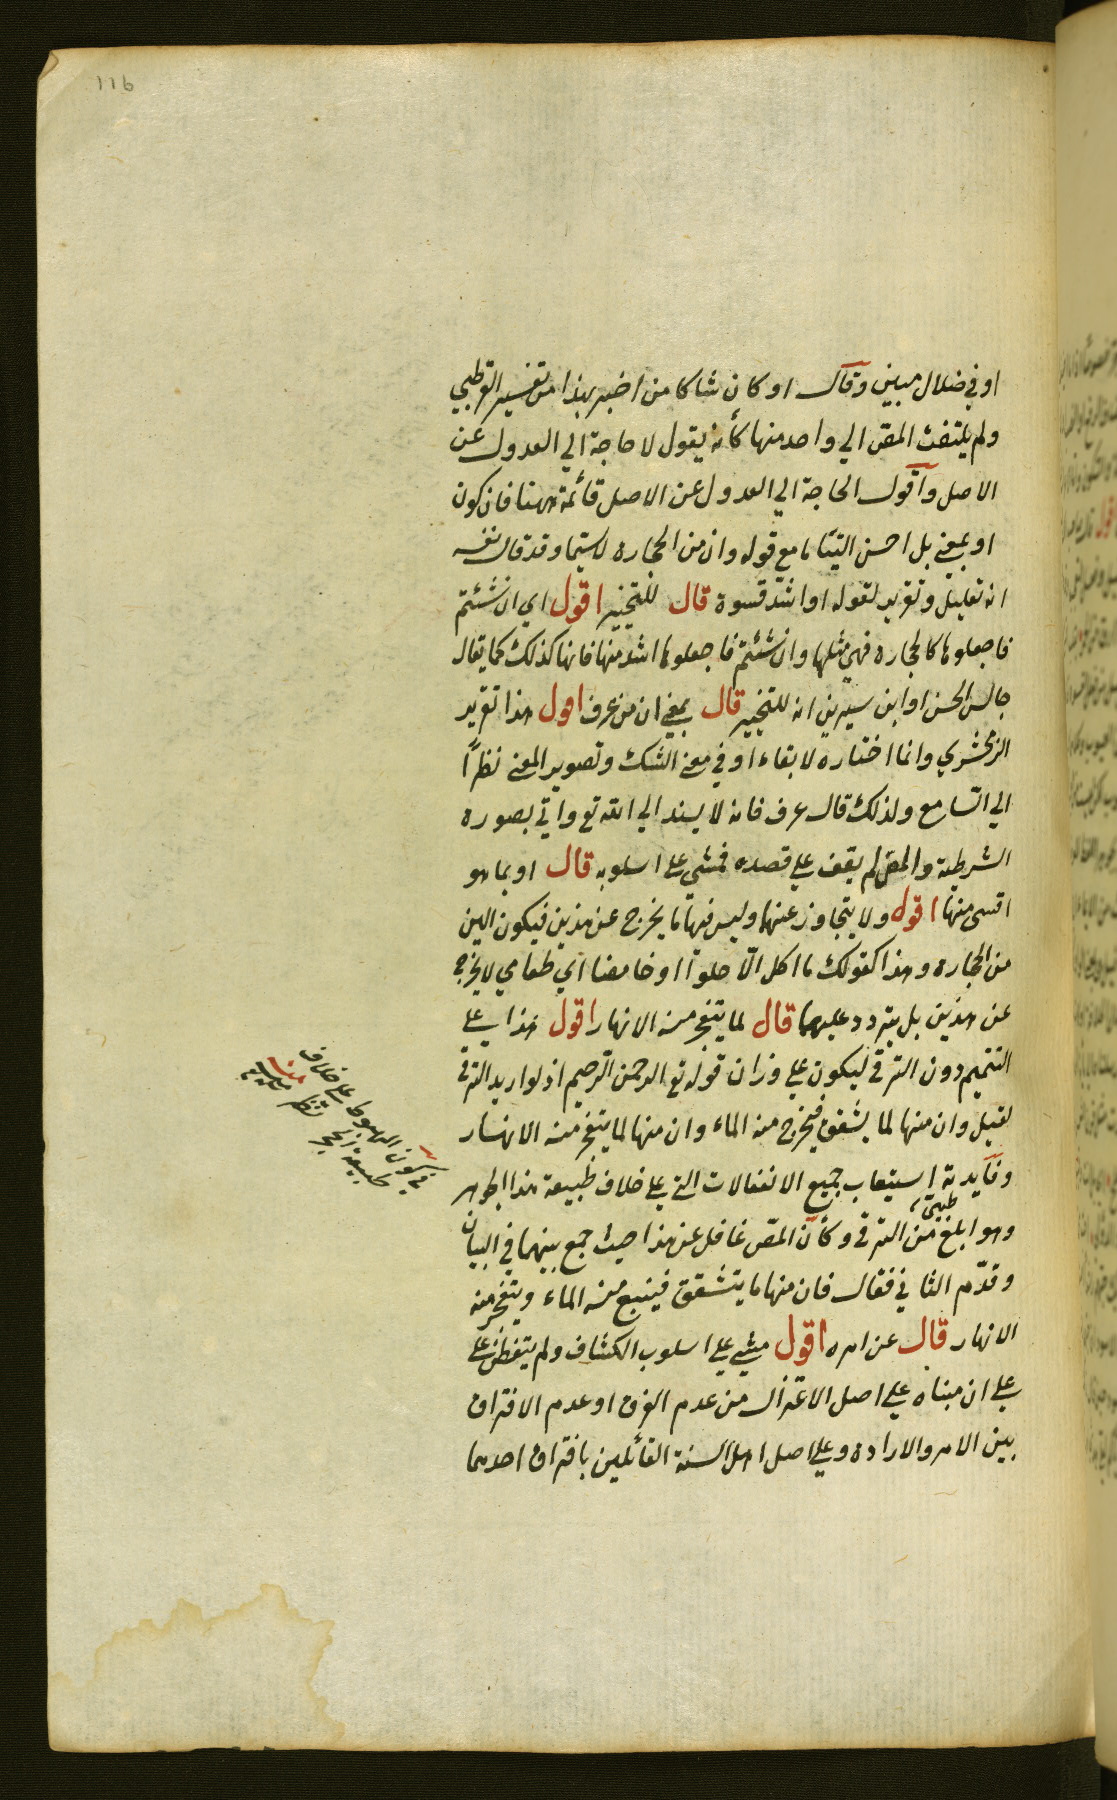 116
او في ضلال مبين وقال او كان شاكا من اخبر بهذا من تفسير القرطبي
ولم يلتفت المص الي واحد منها كأنه يقول لا حاجة الي العدول عن
الاصل وأقول الحاجة الي العدول عن الاصل قائمة ههنا فان كون
او بمعني بل احسن التيّاما مع قوله وان من الحجاره لاسيّما وقد قال نفسه
انه تعليل وتقرير لقوله او اشدّ قسوة قال للتخيير اقول اي ان شئتم
فاجعلوها كالحجاره فهي مثلها وان شئتم فاجعلوها اشد منها فانها كذلك كما يقال
جالس الحسن او ابن سيرين انه للتخيير قال بمعني ان من عرف اقول هذا تقرير
الزمخشري وانما اختاره لابقاء او في معني الشك وتصوير المعني نظرًا
الي السّامع ولذلك قال عرف فانه لا يسند الي الله تع واتي بصورة
الشرطية والمص لم يقف علي قصده فمشي علي اسلوبه قال او بما هو
اقسي منها اقول ولا يتجاوز عنهما وليس فيها ما يخرج عن هذين فيكون الين
من الحجاره وهذا كقولك ما اكل الّا حلوًا او حامضا اي طعامي لا يخرج
عن هذين بل يتردد عليهما قال لما يتفجر منه الانهار اقول هذا يـ علي
التتميم دون الترقي ليكون علي وزان قوله تع الرحمن الرّحيم اذ لو اريد الترقي
لقيل وان منها لما يشقق فيخرج منه الماء وان منها لما يتفجر منه الانهار
وفايدته استيعاب جميع الانفعالات التي علي خلاف طبيعة هذا الجوهر
وهو ابلغ من الترقي وكأنّ المص غافل عن هذا حيث جمع بينهما في البيان
وقدّم الثاني فقال فان منها ما يتشقق فينبع منه الماء ويتفجر منه
الانهار قال عن امره اقول مشي علي اسلوب الكشاف ولم يتفطن علي
علي ان مبناه علي اصل الاعتزال من عدم الفرق او عدم الافتراق
بين الامر والاراده وعلي اصل اهل السنة القائلين بافتراق احدهما
في كون الهبوط علي خلاف
طبيعة الحجر نظر
منه